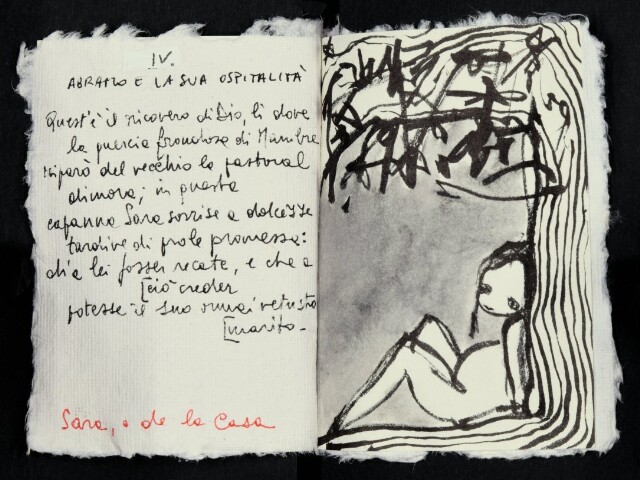 IV.
ABRAMO E LA SUA OSPITALITÀ
Quest'è il ricovero di Dio, lì dove
la quercia frondosa di Mambre
riparò del vecchio la pastoral
dimora; in questa
capanna Sara sorrise a dolcezze
tardive di prole promessa:
ch'a lei fosser recate, e che a
[ciò creder
potesse il suo ormai vetusto
[marito.
Sara, o de la Casa